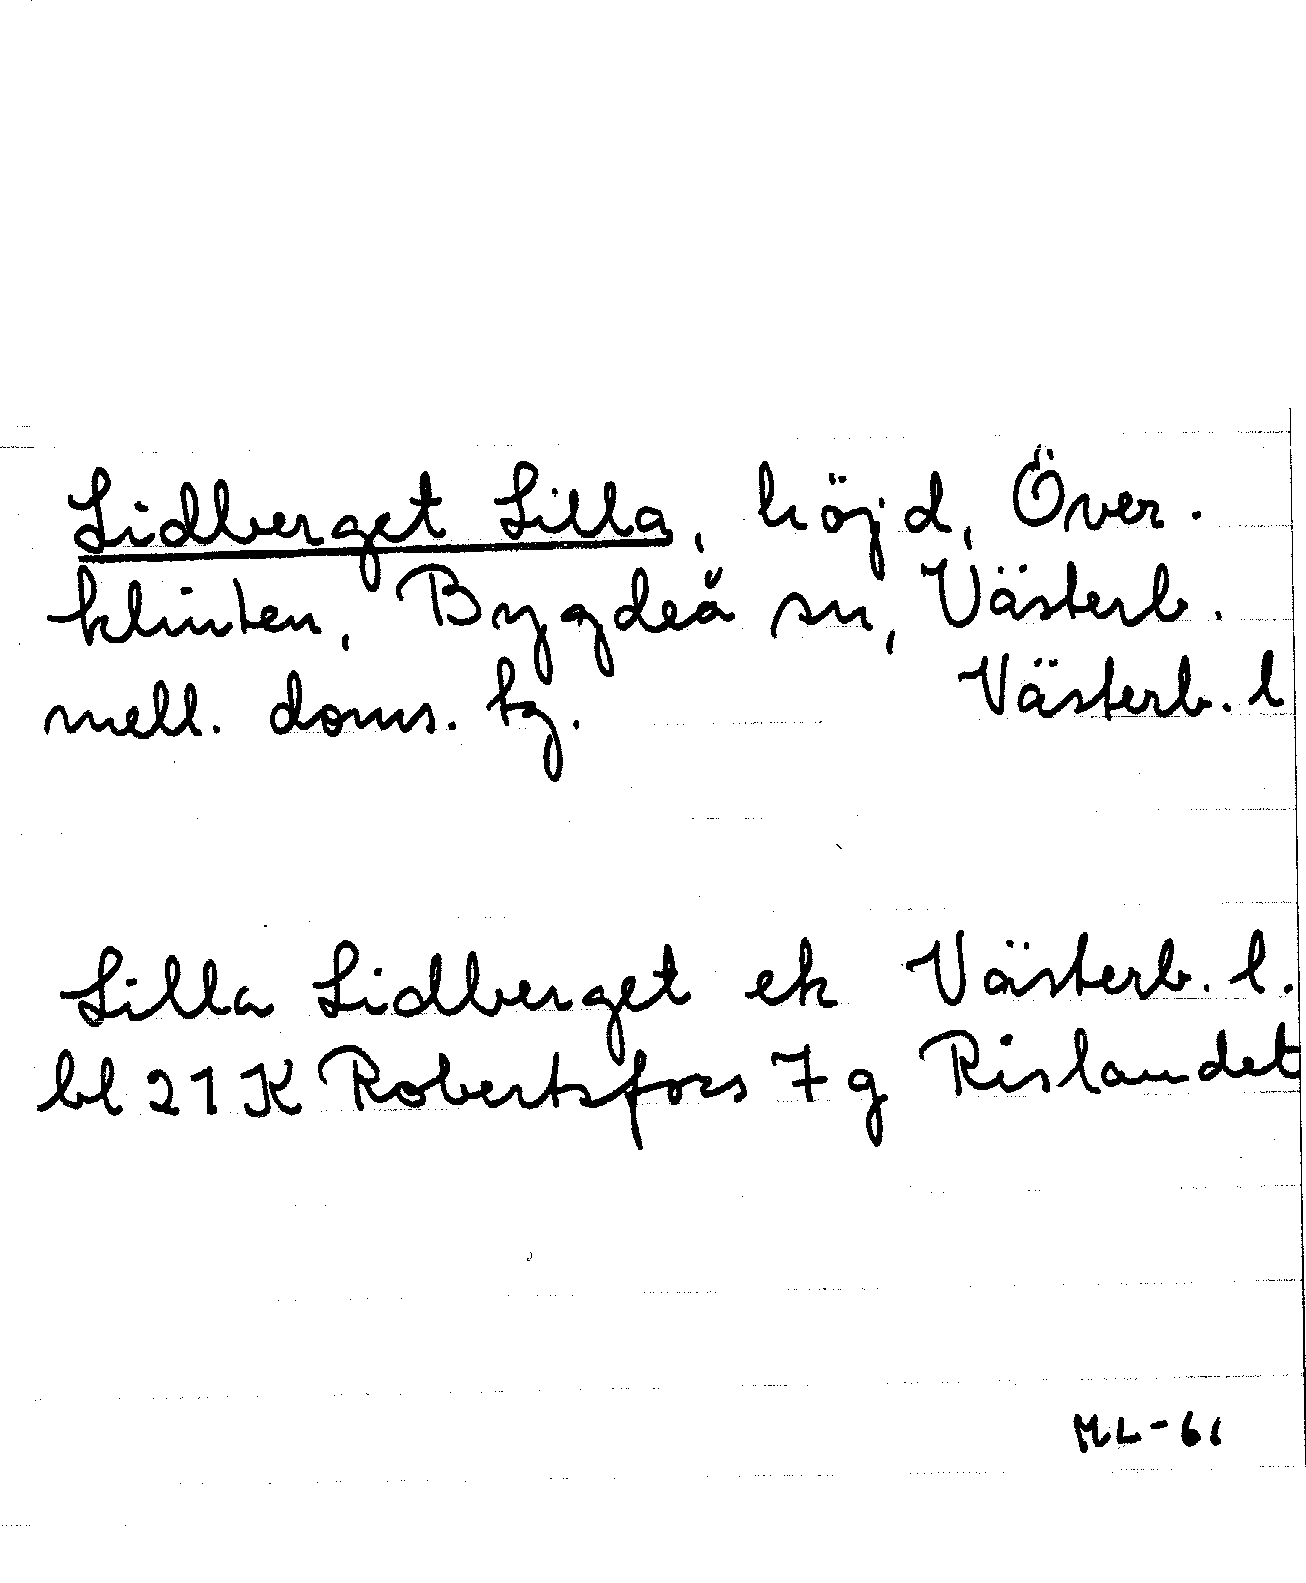 Lidberget Lilla, höjd, Över.
klinten, Bygdeå sn, Västerb.
mell. doms. tg. Västerb. l
Lilla Lidberget ek Västerb. l.
bl 21 K Robertsfors 7 g Rislandet
ML-61